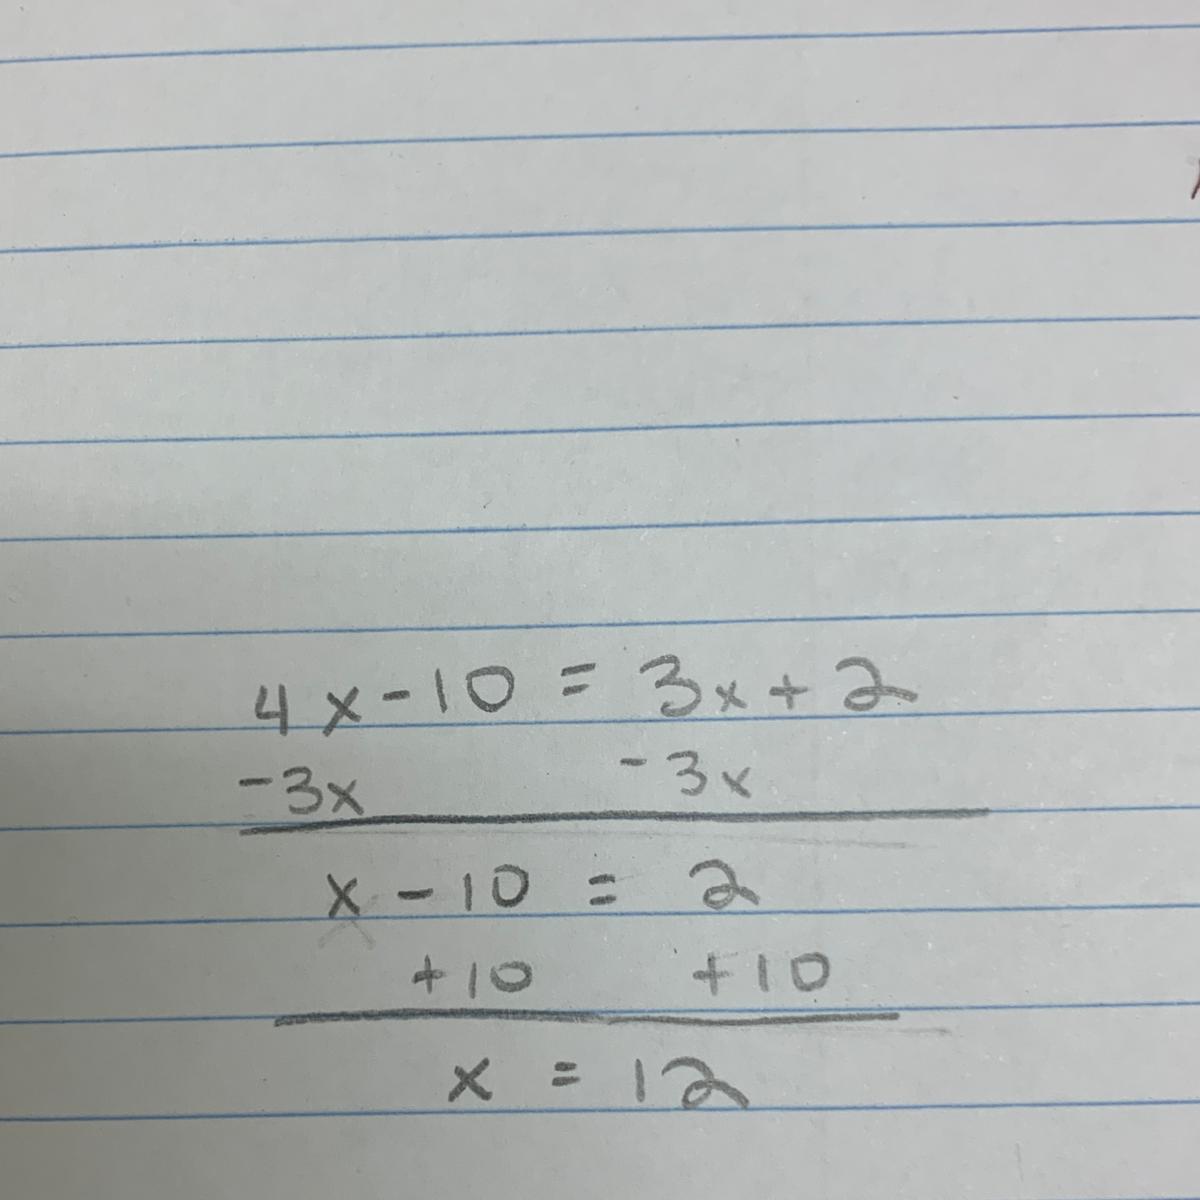 4x-10 = 3x+2
-3x -3x
x - 10 = 2
+10 +10
x = 12